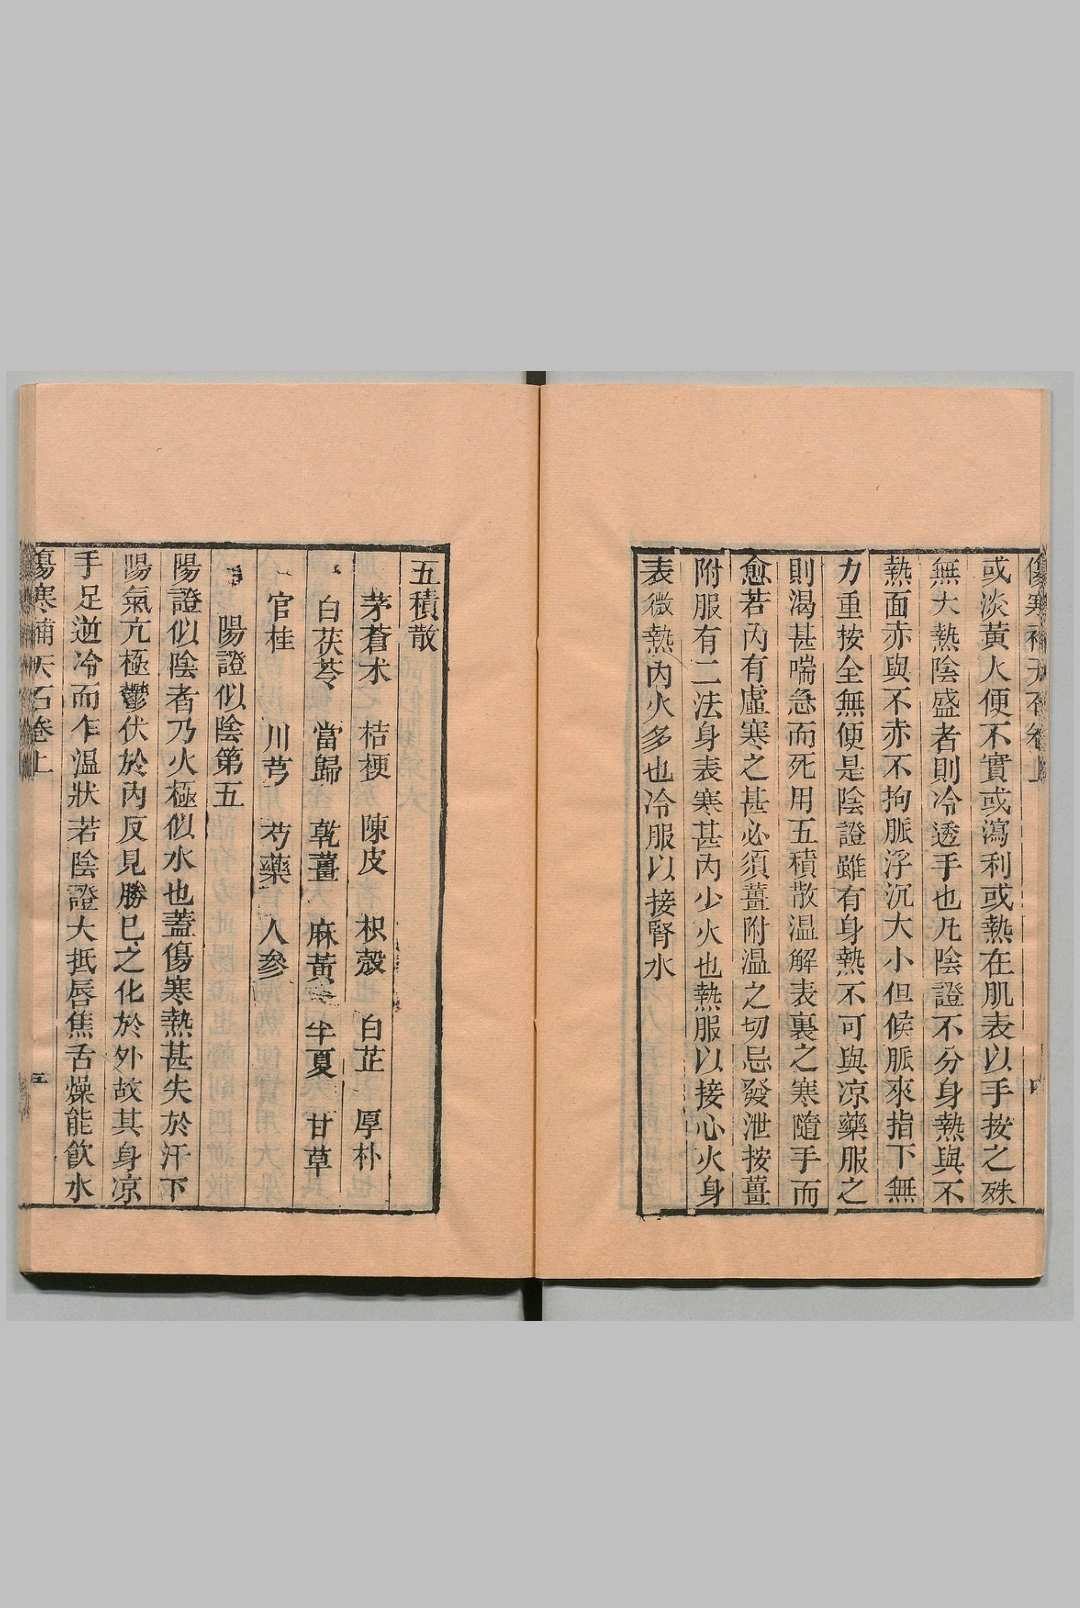 或淡黃大便不實或瀉利或熱在肌表以手按之殊
無大熱陰盛者則冷透手也凡陰證不分身熱與不
熱面赤與不赤不拘脈浮沉大小但候脈來指下無
力重按全無便是陰證雖有身熱不可與凉藥服之
則渴甚喘急而死用五積散溫解表裏之寒隨手而
愈若內有虛寒之甚必須薑附溫之切忌發泄按薑
附服有二法身表寒甚內少火也熱服以接心火身
表微熱內火多也冷服以接腎水
五積散
茅蒼朮 桔梗 陳皮 枳殼 白芷 厚朴
白茯苓 當歸 乾薑 麻黃 半夏 甘草
官桂 川芎 芍藥 人參
陽證似陰第五
陽證似陰者乃火極似水也蓋傷寒熱甚失於汗下
陽氣亢極鬱伏於內反見勝已之化於外故其身凉
手足逆冷而乍溫狀若陰證大抵唇焦舌燥能飲水
傷寒補天石卷上
五